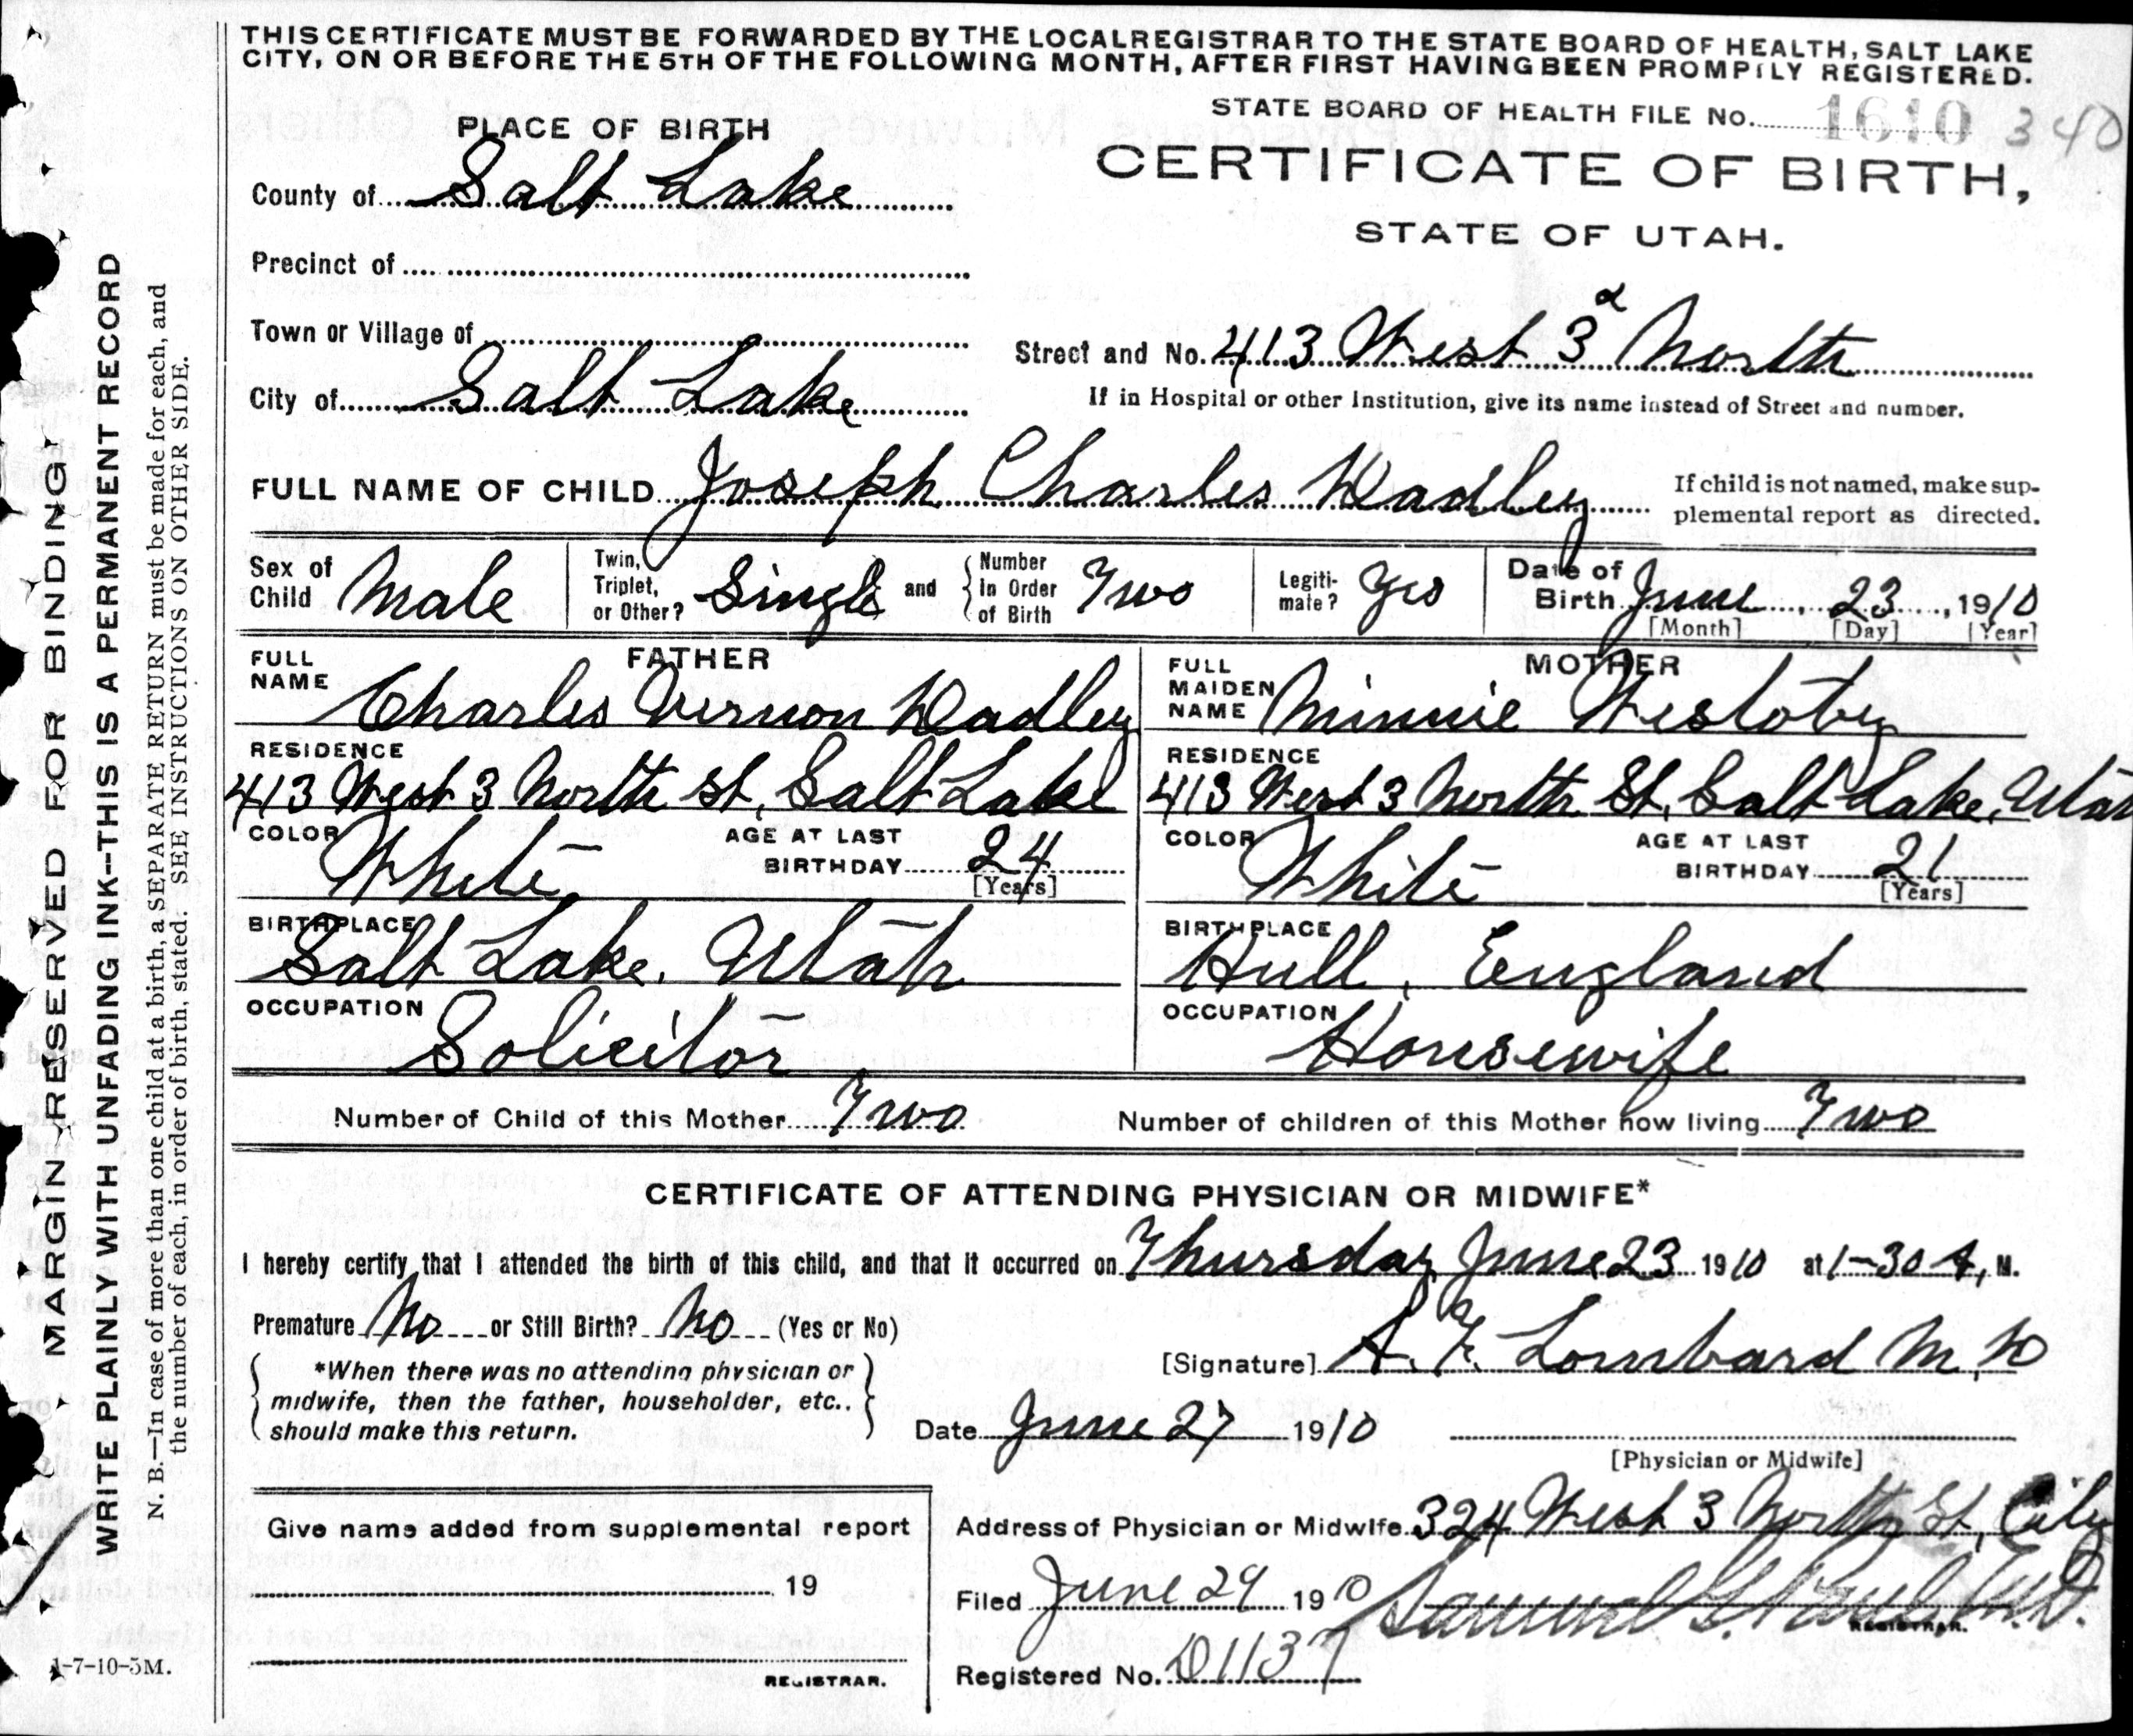 THIS CERTIFICATE MUST BE FORWARDED BY THE LOCAL REGISTRAR TO THE STATE BOARD OF HEALTH, SALT LAKE
CITY, ON OR BEFORE THE 5TH OF THE FOLLOWING MONTH, AFTER FIRST HAVING BEEN PROMPTLY REGISTERED.
STATE BOARD OF HEALTH FILE No. 1610 340
PLACE OF BIRTH
CERTIFICATE OF BIRTH,
STATE OF UTAH.
County of Salt Lake
Precinct of
Town or Village of
Street and No. 413 West 3d North
City of Salt Lake
If in Hospital or other Institution, give its name instead of Street and number.
FULL NAME OF CHILD Joseph Charles Hadley
If child is not named, make sup-
plemental report as directed.
Sex of Child Male
Twin, Triplet, or Other? Single and Number in Order of Birth Two
Legiti-mate? Yes
Date of Birth June 23, 1910
[Month] [Day] [Year]
FATHER
FULL NAME Charles Vernon Hadley
RESIDENCE
413 West 3 North st, Salt Lake
COLOR White
AGE AT LAST BIRTHDAY 24
[Years]
BIRTHPLACE
Salt Lake, Utah
OCCUPATION
Solicitor
MOTHER
FULL MAIDEN NAME Minnie Westoby
RESIDENCE
413 West 3 North St, Salt Lake, Utah
COLOR White
AGE AT LAST BIRTHDAY 21
[Years]
BIRTHPLACE
Hull, England
OCCUPATION
Housewife
Number of Child of this Mother Two
Number of children of this Mother now living Two
CERTIFICATE OF ATTENDING PHYSICIAN OR MIDWIFE*
I hereby certify that I attended the birth of this child, and that it occurred on Thursday June 23 1910 at 1-30 A, M.
Premature No or Still Birth? No (Yes or No)
[Signature] A. F. Lombard M, D
*When there was no attending physician or
midwife, then the father, householder, etc..
should make this return.
Date June 27 1910
[Physician or Midwife]
Give name added from supplemental report
19
REGISTRAR.
Address of Physician or Midwife 324 West 3 North St, City
Filed June 29 1910
Samuel G. Paul, M.D.
REGISTRAR.
Registered No. D1137
MARGIN RESERVED FOR BINDING
WRITE PLAINLY WITH UNFADING INK--THIS IS A PERMANENT RECORD
N. B.—In case of more than one child at a birth, a SEPARATE RETURN must be made for each, and
the number of each, in order of birth, stated. SEE INSTRUCTIONS ON OTHER SIDE.
1-7-10-5M.